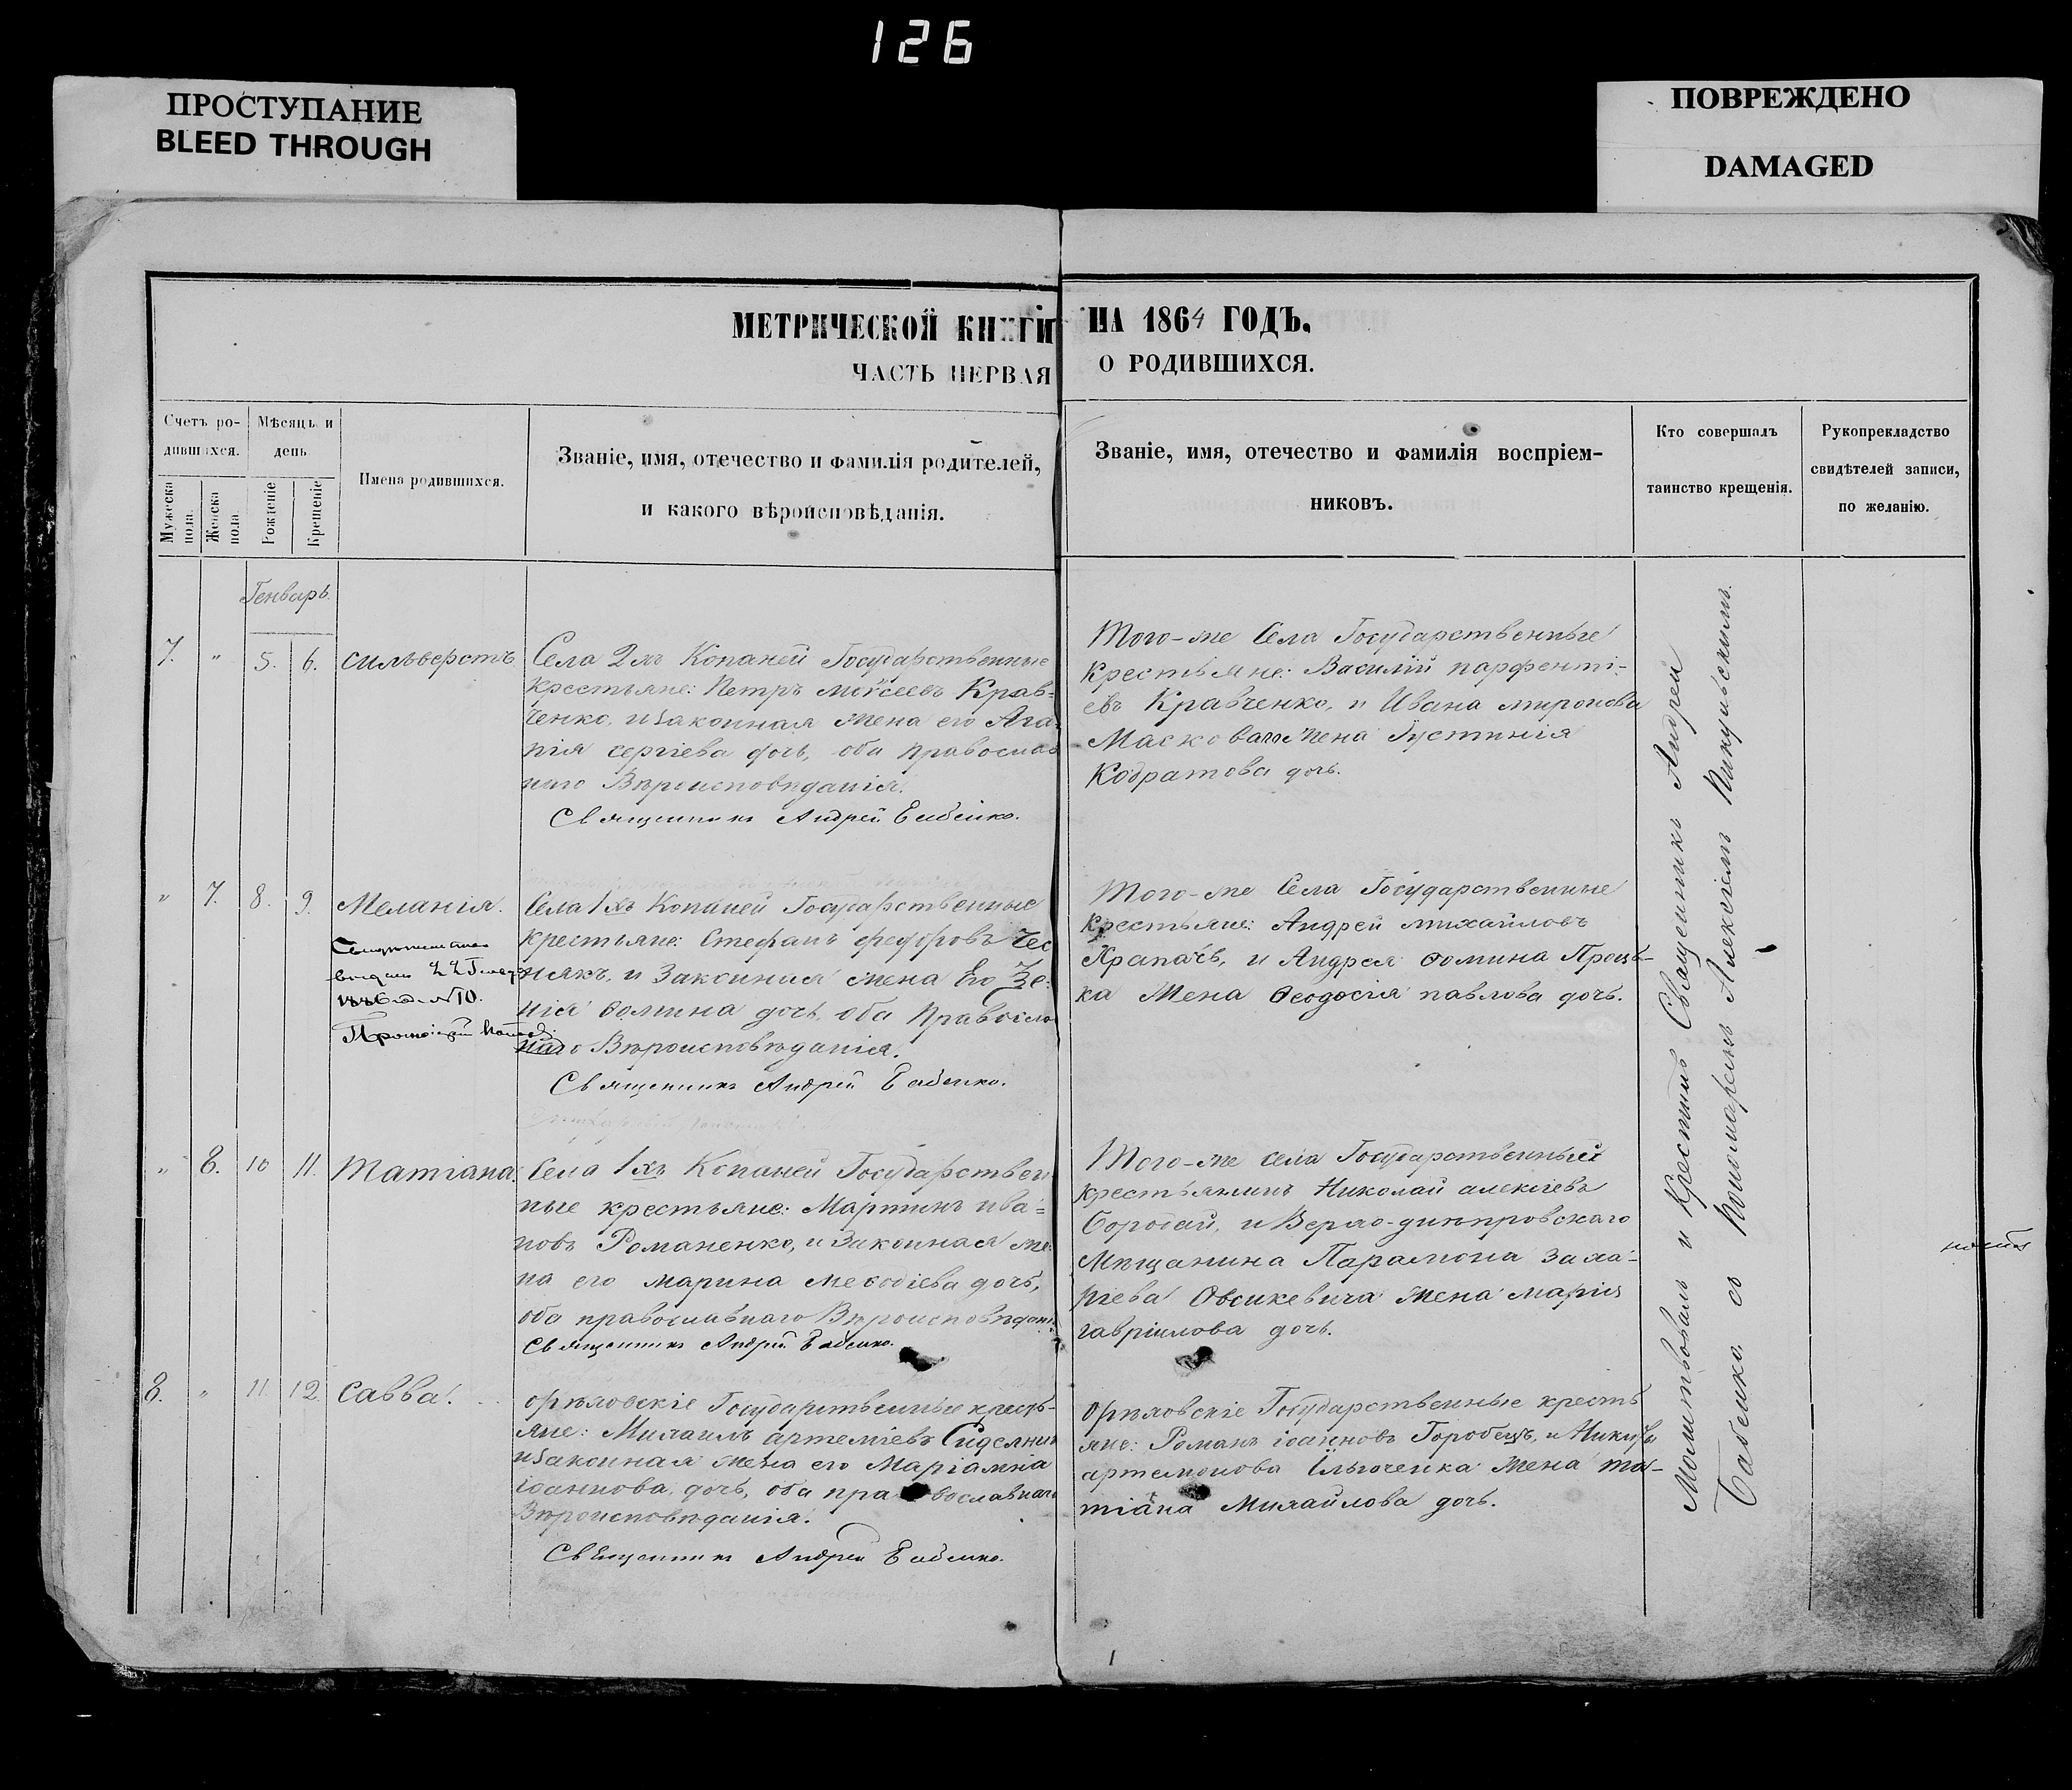 126
ПРОСТУПАНИЕ
BLEED THROUGH
ПОВРЕЖДЕНО
DAMAGED
МЕТРИЧЕСКОЙ КНИГИ НА 1864 ГОДЪ.
ЧАСТЬ ПЕРВАЯ О РОДИВШИХСЯ.
Счетъ ро-
дившихся.
Мужеска
пола.
Женска
пола.
Мѣсяцъ и
день.
Рожденіе
Крещеніе
Имена родившихся.
Званіе, имя, отечество и фамилія родителей,
и какого вѣроисповѣданія.
Званіе, имя, отечество и фамилія воспріем-
никовъ.
Кто совершалъ
таинство крещенія.
Рукоприкладство
свидѣтелей записи,
по желанію.
Генварь.
7. " 5. 6. Сильверстъ.
Села 2хъ Копаней Государственные
крестьяне: Петръ Моѵсеевъ Крав=
ченко, и Законная жена его Ага-
пія Сергіева дочь, оба православ
наго Вѣроисповѣданія.
Священникъ Андрей Бабенко.
Того-же Села Государственные
крестьяне: Василій Парфенті-
евъ Кравченко, и Ивана Миронова
Жена Густинія
Кодратова дочь.
" 7. 8. 9. Меланія.
№ 10.
Села 1хъ Копаней Государственные
крестьяне: Стефанъ Федоровъ Чес
някъ, и Законная жена Его Зе:
нія Ѳомина дочь, оба Правосла
наго Вѣроисповѣданія.
Священникъ Андрей Бабенко.
Того-же Села Государственные
крестьяне: Андрей Михайловъ
Храпачъ, и Андрея Ѳомина Проць-
ка Жена Ѳеодосія Павлова дочь.
" 8. 10 11. Татіана.
Села 1хъ Копаней Государствен
ные крестьяне: Мартинъ Ива=
новъ Романенко, и Законная же
на его Марина Меѳодіева дочь,
оба православнаго Вѣроисповѣдані
Священникъ Андрей Бабенко.
Того-же села Государственный
крестьянинъ Николай Алексіевъ
Бородай, и Верхо-днѣпровскаго
Мѣщанина Парамона Заха-
ріева Овсикевича Жена Марія
Гавріилова дочь.
8. " 11. 12 Савва.
Орѣховскіе Государственные кресть-
яне: Михаилъ Артеміевъ
и Законная жена его Маріамна
Іоаннова дочь, оба православнаго
Вѣроисповѣданія.
Священникъ Андрей Бабенко.
Орѣховскіе Государственные кресть
яне: Романъ Іоанновъ Горобецъ, и
Артемонова Ільюченка Жена Та-
тіана Михайлова дочь.
Молитвовалъ и Крестилъ Священникъ Андрей
Бабенко съ Пономаремъ Алексіемъ Пикульскимъ.